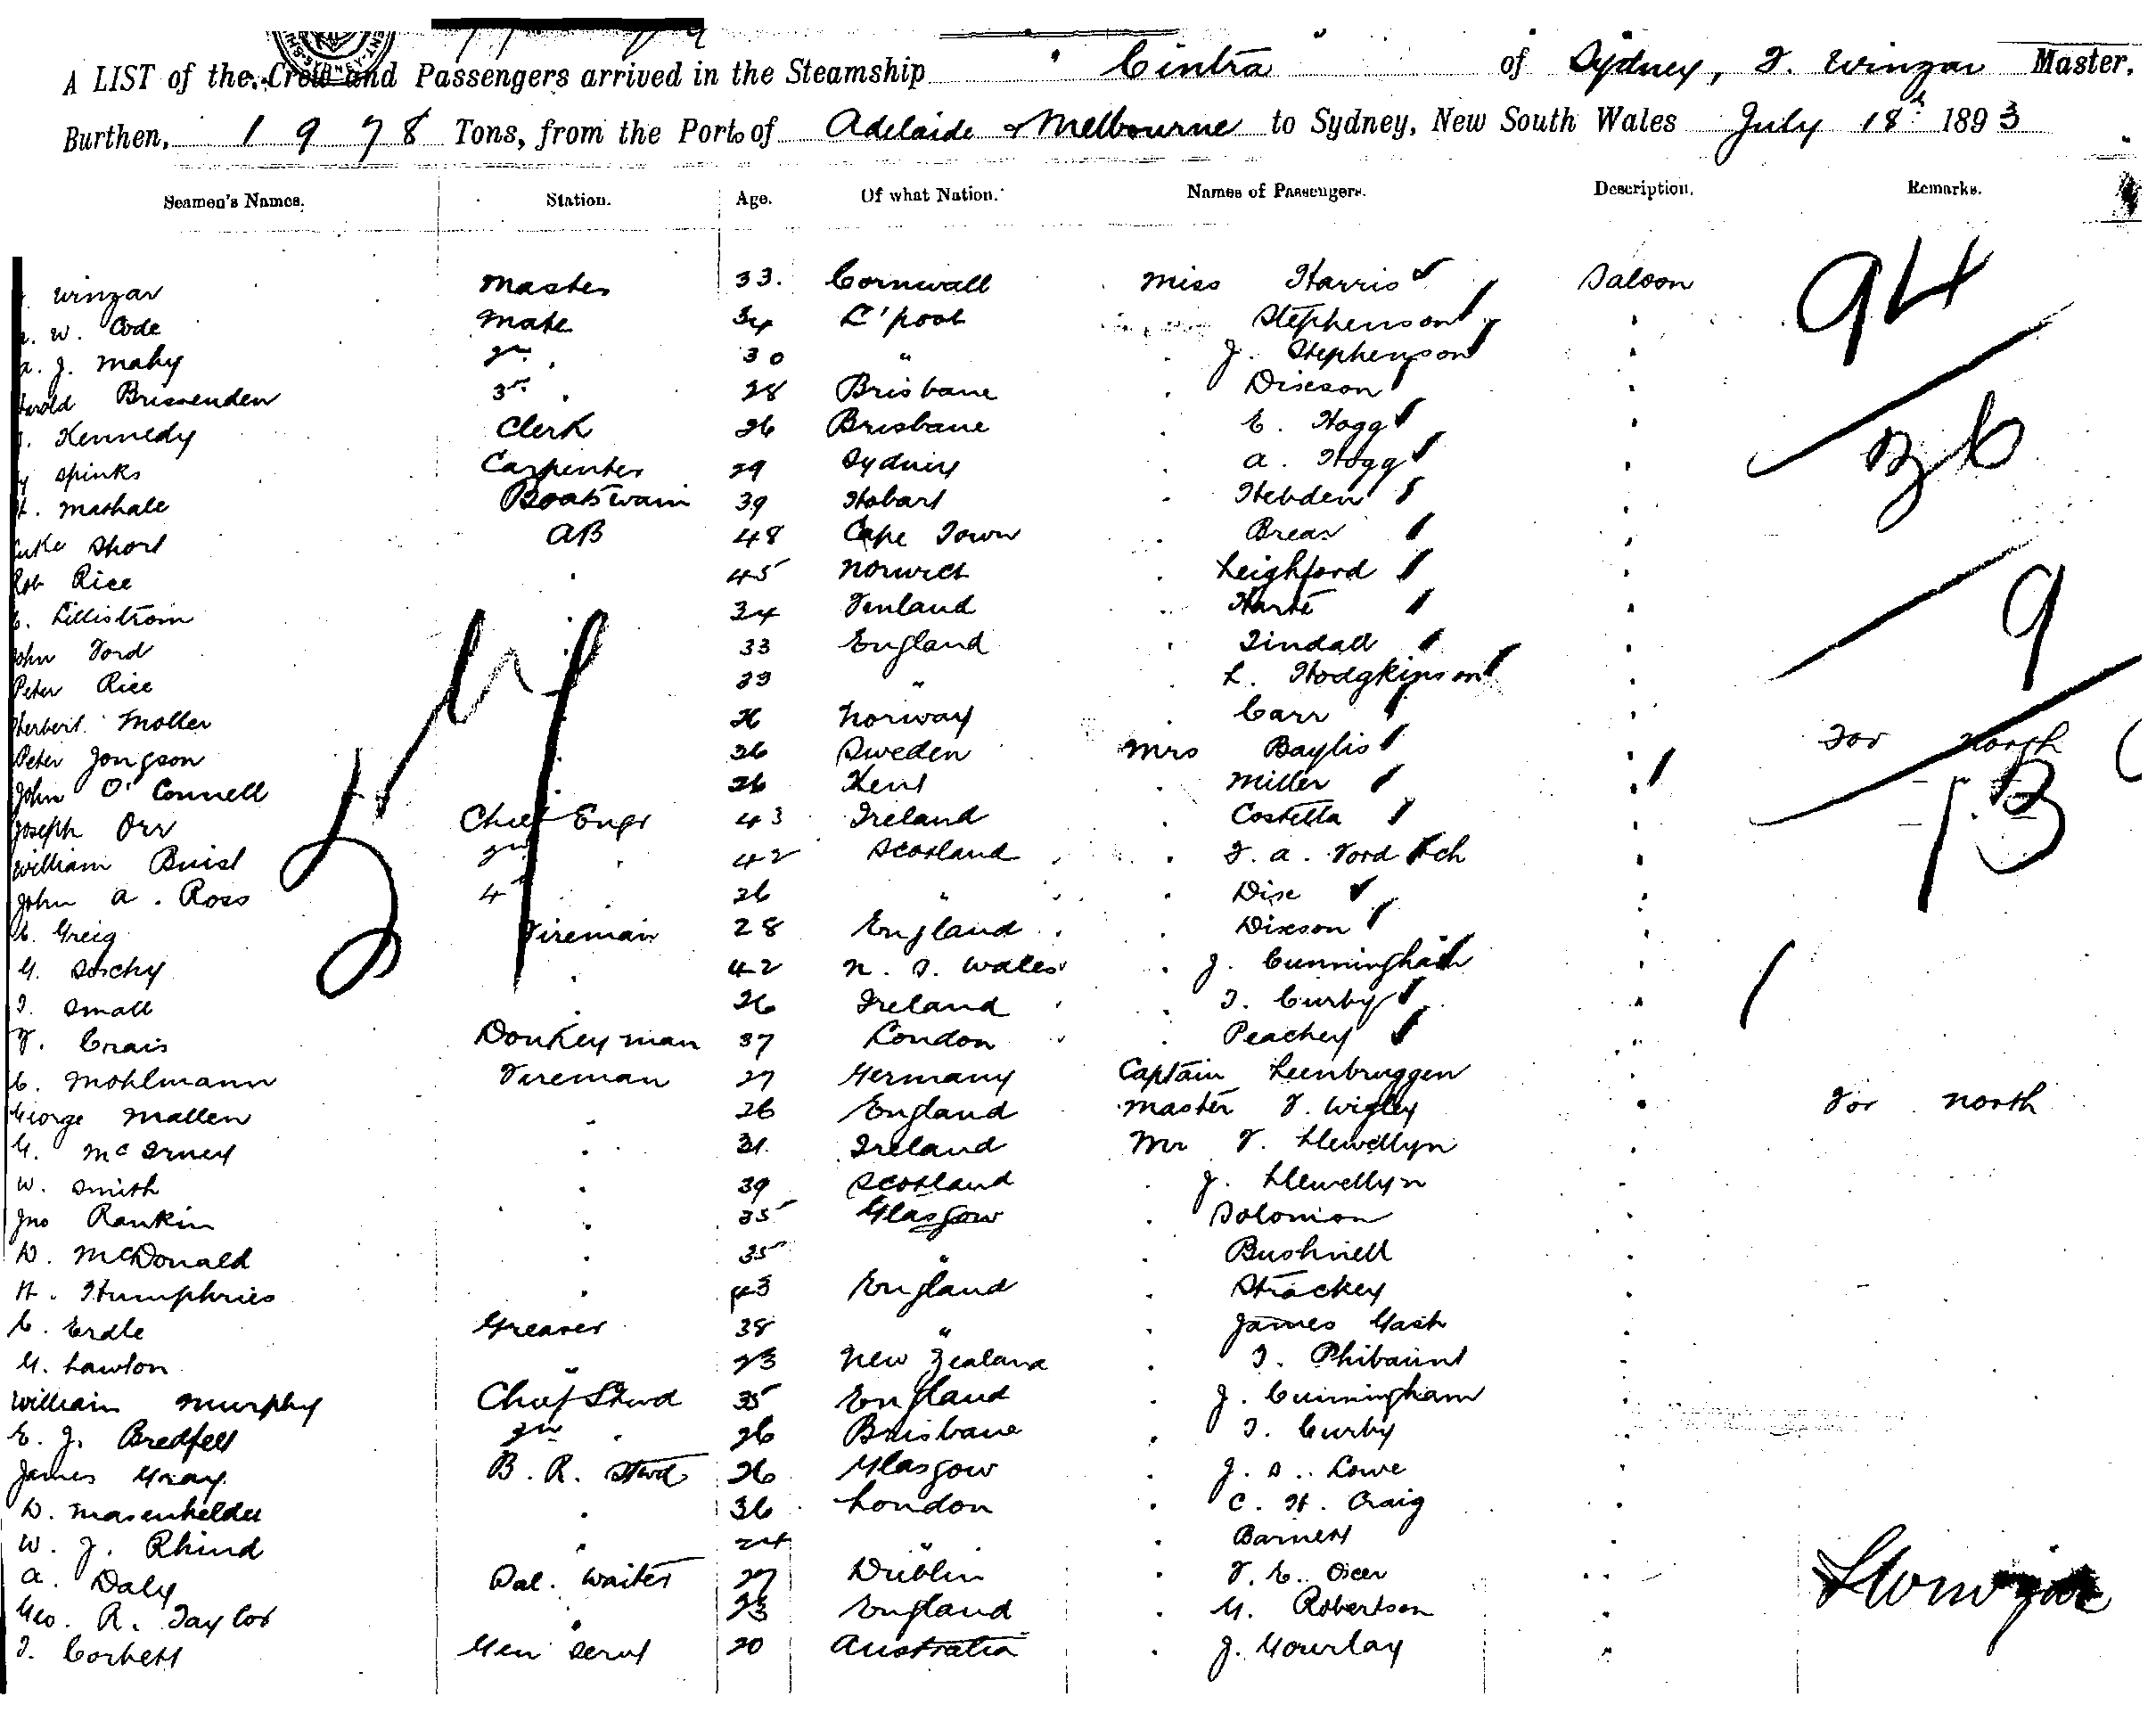 A LIST of the Crew and Passengers arrived in the Steamship "Cintra" of Sydney, F. Winzar Master,
Burthen, 1978 Tons, from the Port of Adelaide & Melbourne to Sydney, New South Wales July 18th 1893
Seamen's Names. Station. Age. Of what Nation. Names of Passengers. Description. Remarks.
Winzar Master 33. Cornwall Miss Harris Saloon 94
W. Code Mate 34 L'pool Stephenson
A. J. Mahy 2nd 30 " J. Stephenson
Harold Brissenden 3rd 28 Brisbane Dixson
Kennedy Clerk 26 Brisbane E. Hogg 26
Spinks Carpenter 29 Sydney A. Hogg
Mashale Boatswain 39 Hobart Hebden
Luke Short AB 48 Cape Town Brear
Rob Rice 45 Norwich Leighford
Lillistrom 34 Finland Harte 9
John Ford 33 England Tindall
Peter Rice 23 " L. Hodgkinson
Herbert Moller 26 Norway Carr
Peter Jongson 26 Sweden Mrs Baylis For North
John O'Connell 26 Kent Miller 13
Joseph Orr Chief Engr 43 Ireland Costella
William Buist 2nd 42 Scotland F. A. Ford & ch
John A. Ross 4th 26 " Dixe
C. Greig Fireman 28 England Dixson
G. Sochy 42 N. S. Wales J. Cunningham
T. Small 26 Ireland T. Curby
F. Crais Donkeyman 37 London Peachey
C. Mohlmann Fireman 27 Germany Captain Leenbruggen
George Mallen 26 England Master F. Wigley For North
G. McIrney 31 Ireland Mr F. Llewellyn
W. Smith 39 Scotland J. Llewellyn
Jno Rankin 35 Glasgow Solomon
D. McDonald 35 " Bushnell
H. Humphries 43 England Strackey
C. Erdle Greaser 38 " James Gash
G. Lawton " 23 New Zealand T. Phibaunt
William Murphy Chief Stwd 35 England J. Cunningham
E. J. Bredfell 2nd 26 Brisbane T. Curby
James Gray B. R. Stwd 26 Glasgow J. S. Lowe
D. Masenhelder 36 London C. H. Craig
W. J. Rhind 24 " Barnett
A. Daly Sal. Waiter 27 Dublin F. E. Oser
Geo. R. Taylor 23 England G. Robertson
T. Corbett Gen Servt 20 Australia J. Gourlay